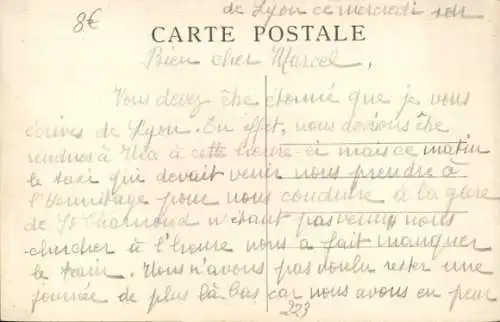 8€
de Lyon ce mercredi soir
CARTE POSTALE
Bien cher Marcel,
Vous devez être étonné que je vous
écrives de Lyon. En effet, nous devions être
rendues à à cette heure-ci mais ce matin
le taxi qui devait venir nous prendre à
l'Hermitage pour nous conduire à la gare
de St Chamond n'étant pas venu nous
chercher à l'heure nous a fait manquer
le train. Nous n'avons pas voulu rester une
journée de plus là-bas car nous avons eu peur
223